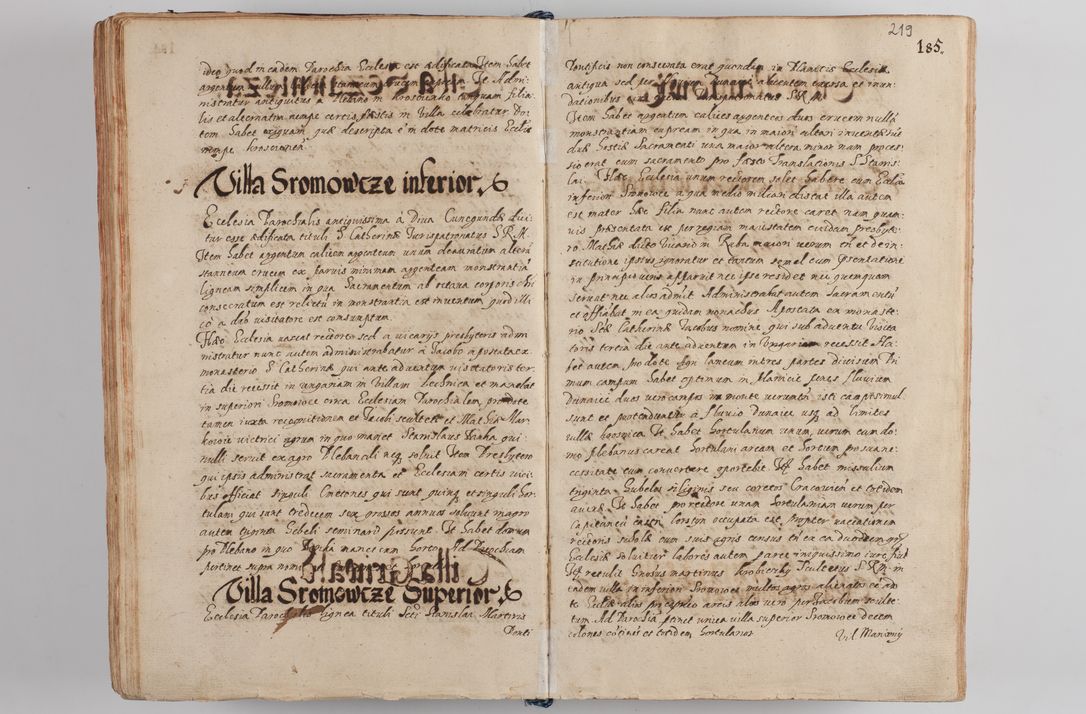 ideo quod in eadem Parochia Ecclesia est ædificata Item habet
argenteum
nistratur antiquitus a Plebano in Krosciensko tanquam filia
lis et alternatim nempe certis festis in Villa celebratur Do
tem habet exiguam quæ descripta è in dote matricis Ecclæ
nempe Krosciensis
Villa Sromowcze inferior.
Ecclesia Parochialis antiquissima à Diva Cunegunda dici
tur esse ædificata tituli S Catherinæ Jurispatronatus S R M.
Item habet argentum calicem argenteum unum deauratum alterū
stanneum crucem ex parvis minimam argenteam monstrantiā
ligneam simplicem in qua Sacramentum ab octava corporis chi
consecratum est relictū in monstrantia est inventum quod illi
co a dno visitatore est consumptum
Hæc Ecclesia vacat rectore sed a vicarijs presbyteris admi
nistratur nunc autem administrabatur à Jacobo apostata ex
monasterio S Catherinæ qui ante adventum visitatoris ter
tia die recessit in Ungariam in Villam Lechnica et manebat
in superiori Sromowce circa Ecclesiam Parochialem, pro dote
tamen iuxta recognitionem et Jacobi sculteti et Mathiæ Mar
kowic victrici agrum in quo manet Stanislaus qui
nulli servit ex agro Plebanali neq solvit Item Presbytero
qui ipsis administrat sacramenta et Ecclesiam certis vici
bus officiat singuli Cmetones qui sunt quinq et singuli hor
tulani qui sunt tredecem sex grossos annuos solvunt in agro
autem triginta Gebeli seminari possunt It habet domum
pro Plebano in quo manet cum horto Ad Parochiam
pertinet supra
Villa Sromowcze Superior.
Ecclesia Parochialis lignea tituli Scti Stanislai Martyris
Ponti
219
185.
Pontificis non consecrata erat quondam in Planicis Ecclesia
antiqua sed per fluvium Dunaiec aversa et inun
dationibus S R M.
Item habet argentum calices argenteos duos crucem nullā
monstrantiam cupream in qua in maiori altari inventæ sūt
duæ hostiæ Sacramenti una maior altera minor nam proces
sio erat cum sacramento pro festo Translationis S Stanis
lai. Hæc Ecclesia unum rectorem solet habere cum Ecclia
inferiori Sromowce a qua medio miliari distat illa autem
est mater hæc filia nunc autem rectore caret nam quam
vis præsentata est per regiam maiestatem cuidam presbyte
ro Mathiæ dicto Vicario in Raba maiori verum en et de in
stitutione ipsius ignoratur et tantum semel cum præsentatione
in principe vero apparuit nec ipse residet nec quemquam
servat nec alios admit. Administrabat autem Sacramentū
et officiabat in ea quidam monachus Apostata ex monaste
rio Sctæ Catherinæ Jacobus nomine qui sub adventu Visita
toris tertia die ante adventum in Ungariam recessit Ha
bet autem pro dote agri laneum in tres partes divisum Pri
mum campum habet optimum in planicie penes fluvium
Dunaiec duos vero campos in monte verumtn isti campi simul
sunt et protenduntur à fluvio Dunaiec usq ad limites
villæ It habet hortulanum unum, verum cum do
mo plebanus careat hortulani aream et hortum pro sua ne
cessitate eum convertere oportebit Itē habet missalium
triginta Gubelos siliginis seu coretos Cracovien et totidem
avenæ It habet pro rectore unam hortulaniam verum per
Capitaneū castri Corstyn occupata est, propter vacationem
rectoris schola cum suis agris census en ex ea duodecem gr
Ecclesiæ solvitur labores autem faret iniquissimo iure, sub
Itē retulit Gnosus martinus Krobiczky Scultetus S R M in
eadem villa inferiori Sromowce multos agros alienatos eē ad
te Ecclæ alios pro arcis alios vero per Jacobum sculte
tum. Ad Parochiā ptinet unica villa superior Sromowce decem
colonos cotines et totidem hortulanos